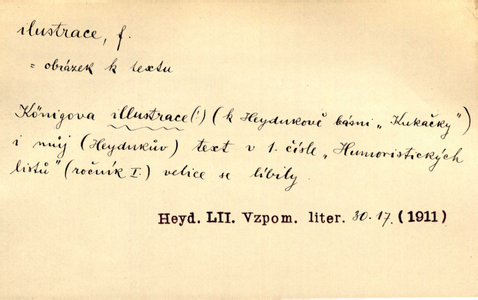 ilustrace, f.
= obrázek k textu
Königova illustrace(!) (k Heydukově básni „Kukačky")
i můj (Heydukův) text v 1. čísle „Humoristických
listů" (ročník I.) velice se líbily.
Heyd. LII. Vzpom. liter. 30.17. (1911)